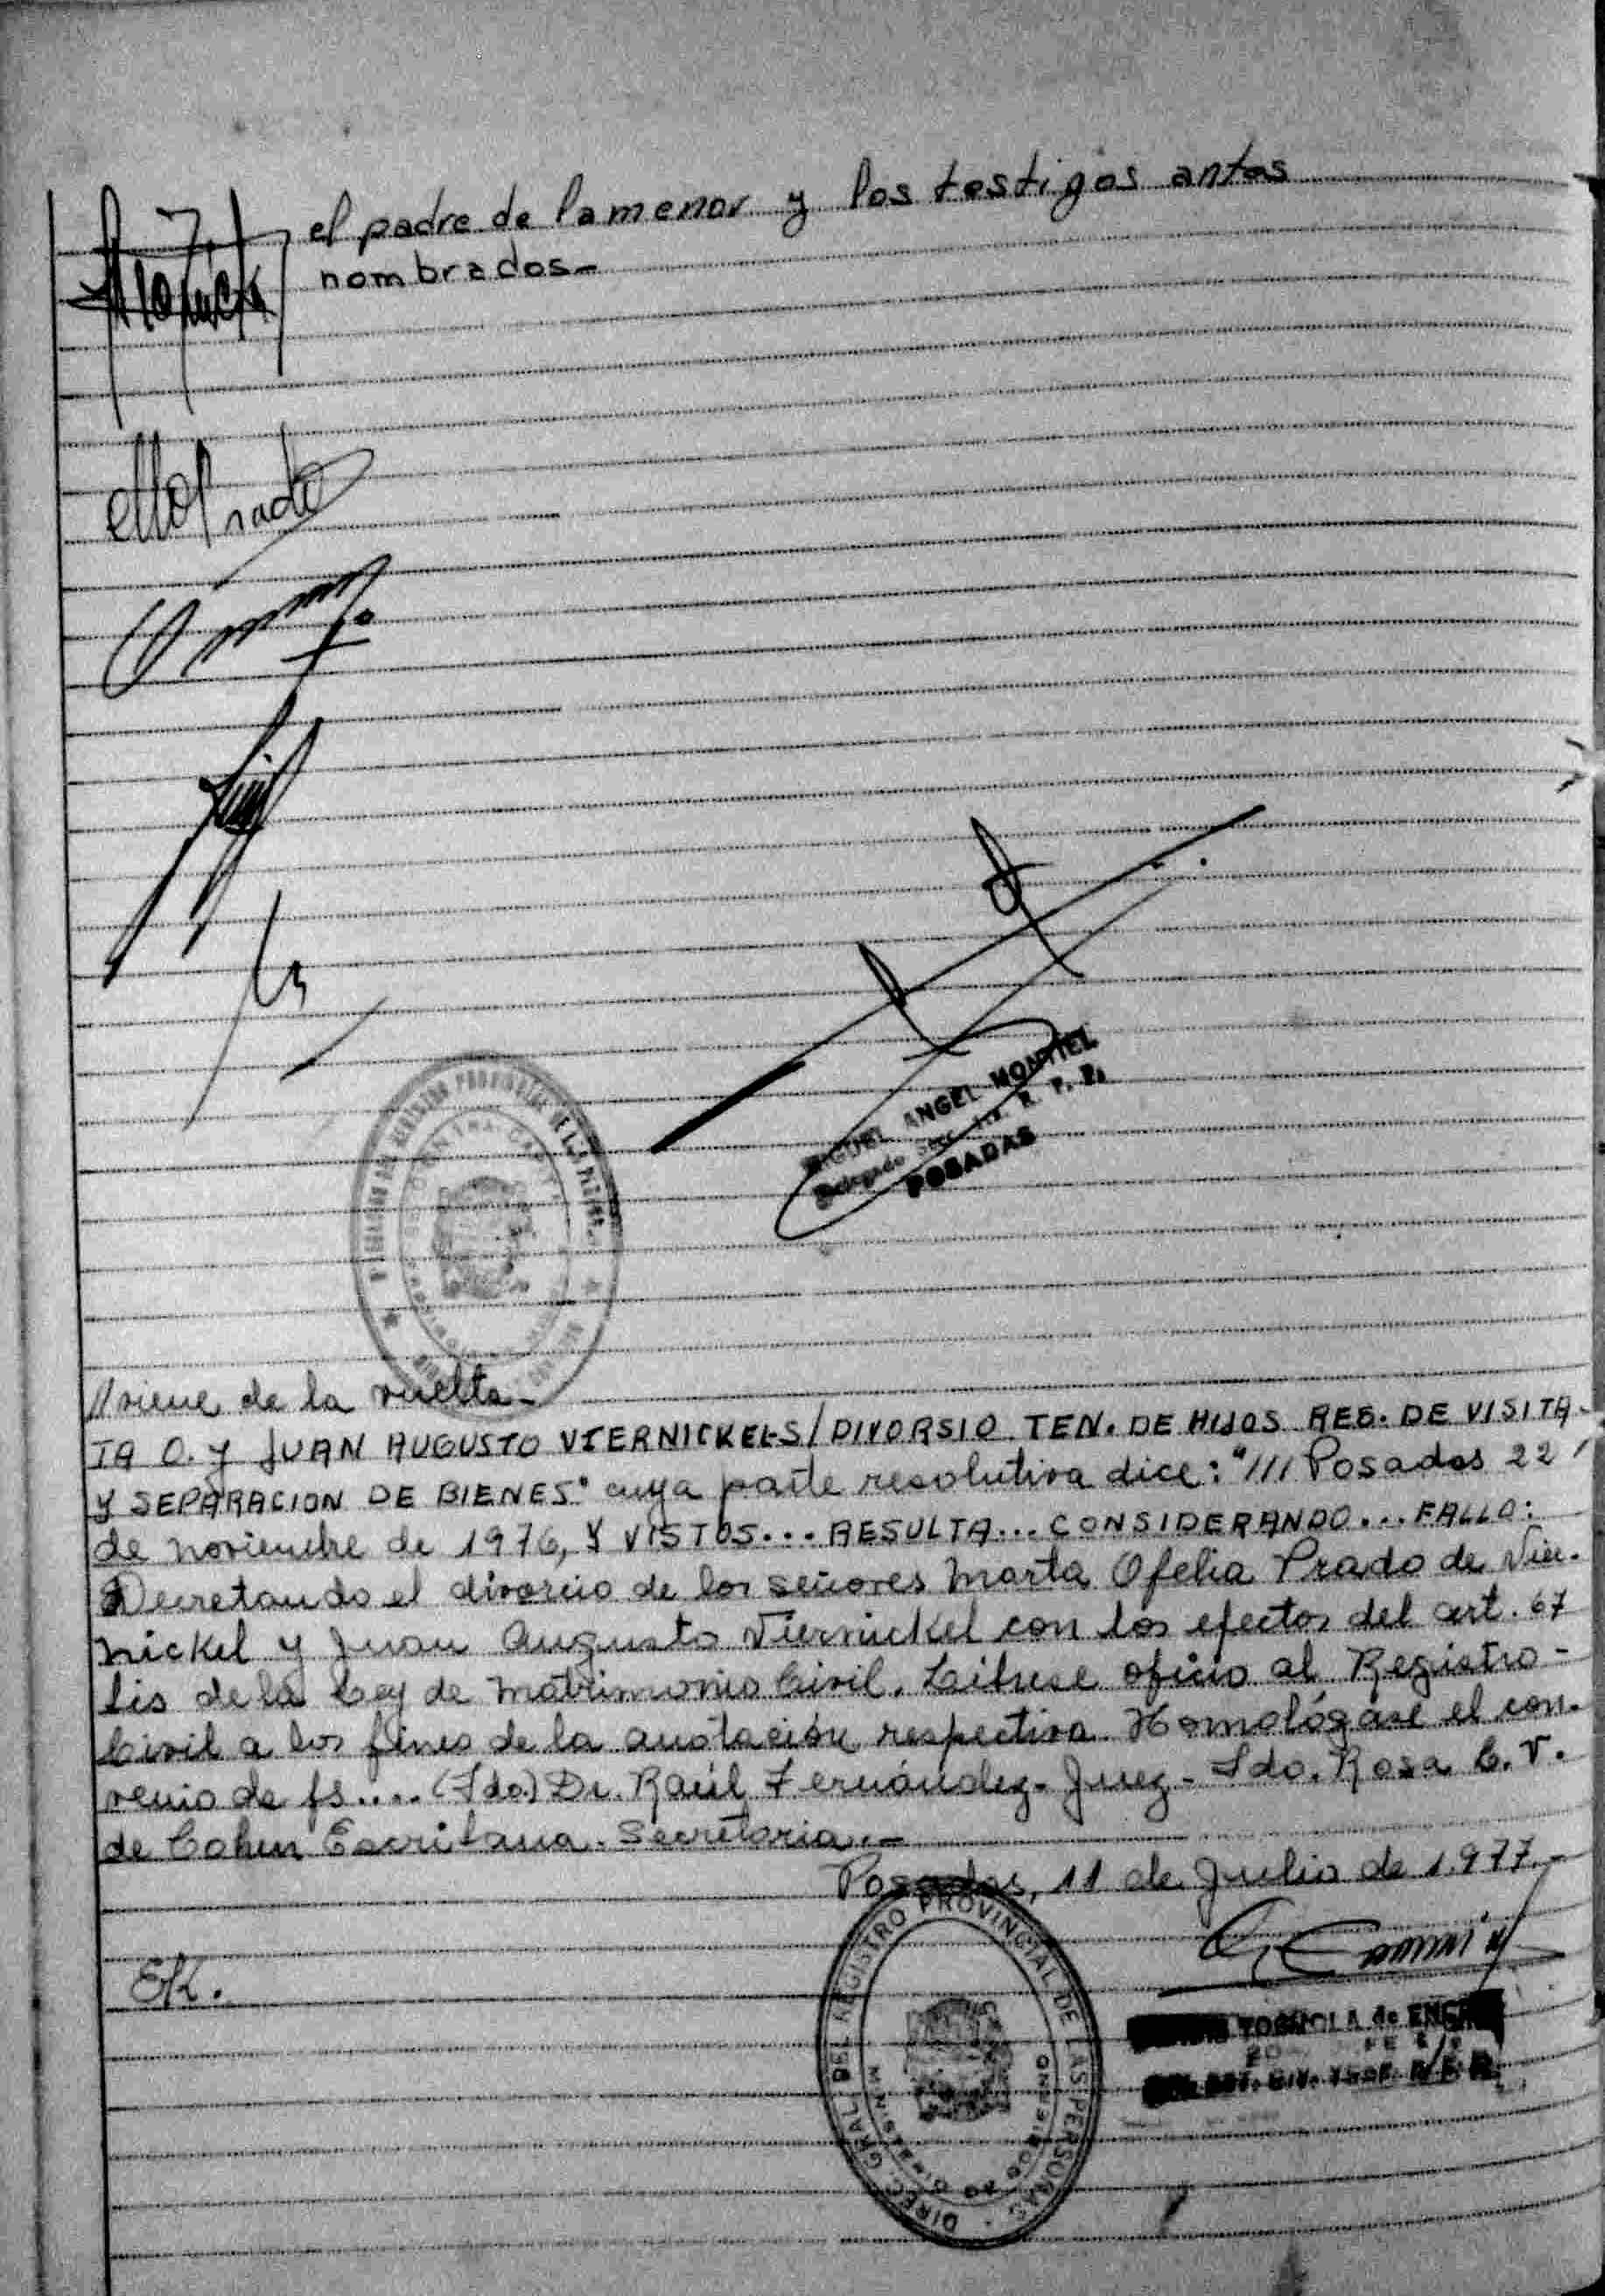 el padre de la menor y los testigos antes
nombrados.-
MOPrado
MIGUEL ANGEL MONTIEL
Delegado Secc. R. P. P.
POSADAS
//viene de la vuelta.-
TA O. y JUAN AUGUSTO VIERNICKEL S/DIVORSIO TEN. DE HIJOS REG. DE VISITA-
Y SEPARACION DE BIENES" cuya parte resolutiva dice: "/// Posadas 22
de noviembre de 1976, Y VISTOS... RESULTA... CONSIDERANDO... FALLO:
Decretando el divorcio de los señores Marta Ofelia Prado de Vier-
nickel y Juan Augusto Viernickel con los efectos del art. 67
bis de la Ley de Matrimonio Civil. Líbrese oficio al Registro-
Civil a los fines de la anotación respectiva. Homológase el con-
venio de fs.... (Fdo.) Dr. Raúl Fernández- Juez- Fdo. Rosa C. V.
de Cohen Escribana. Secretaria.-
Posadas, 11 de Julio de 1.977.-
EK.
DIREC. GRAL. DEL REGISTRO PROVINCIAL DE LAS PERSONAS
MINISTERIO DE GOBIERNO
TOGNOLA de